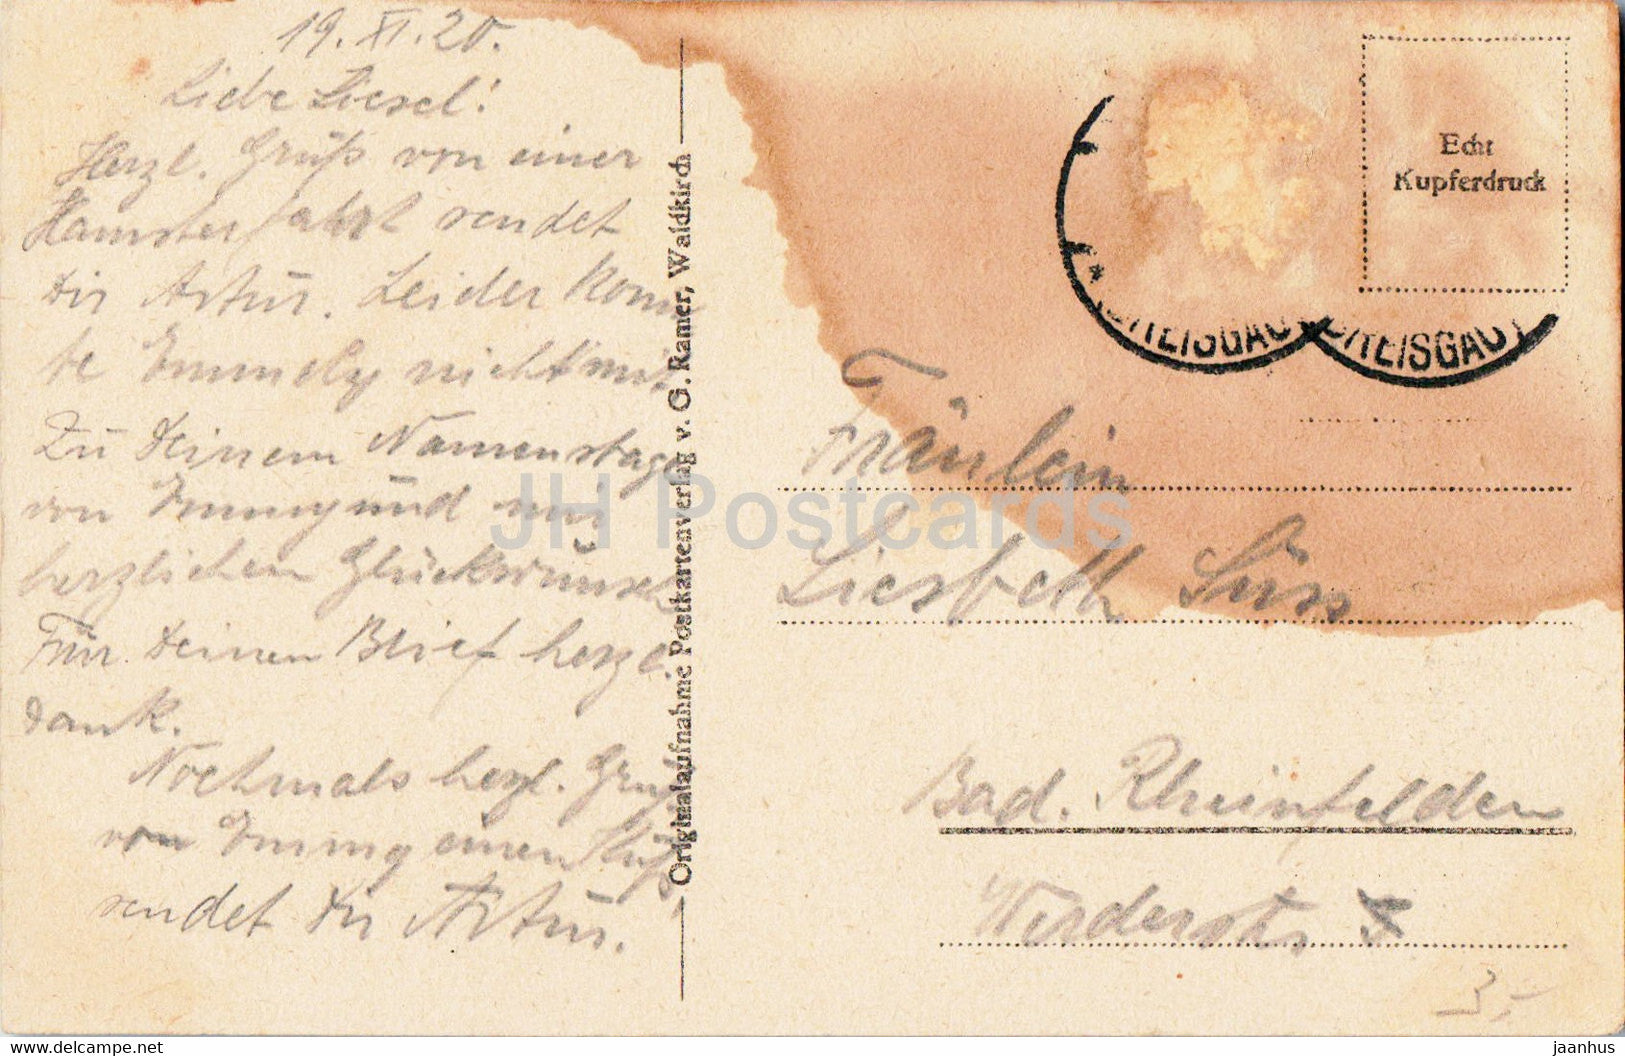 19. XI. 20.
Liebe Liesel!
Herzl. Grüß von einer
Hamsterfahrt sendet
Dir Artur. Leider konn
te Emmely nicht mit
Zu Deinem Namenstage
von Emmy und mir
herzlichen Glückwünsch
Für Deinen Brief herzl.
Dank.
Nochmals herzl. Grüß
von Emmy einen Küß,
sendet Dir Artur.
Originalaufnahme Postkartenverlag v. G. Ramer, Waldkirch
Echt
Kupferdruck
BREISGAU
BREISGAU
Fräulein
Liesbeth Süss
Bad. Rheinfelden
Werderstr
3,-
JH Postcards
www.delcampe.net
jaanhus